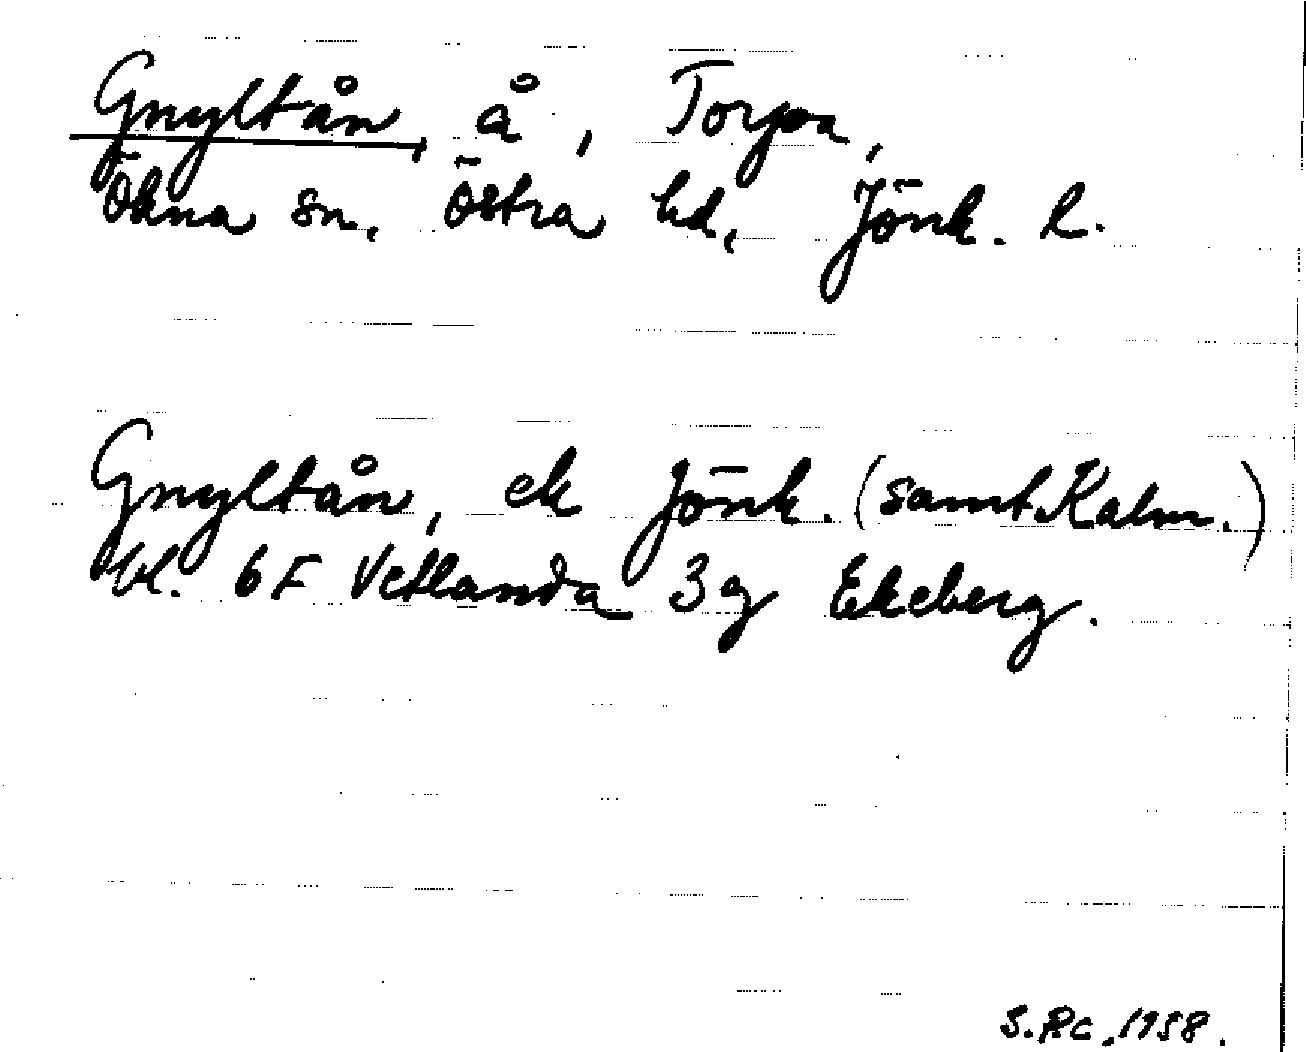 Gnyltån, å, Torpa,
Ökna sn, Östra hd, Jönk. l.
Gnyltån, ek Jönk. (samt Kalm.)
bl. 6F Vetlanda 3g Ekeberg.
1958.